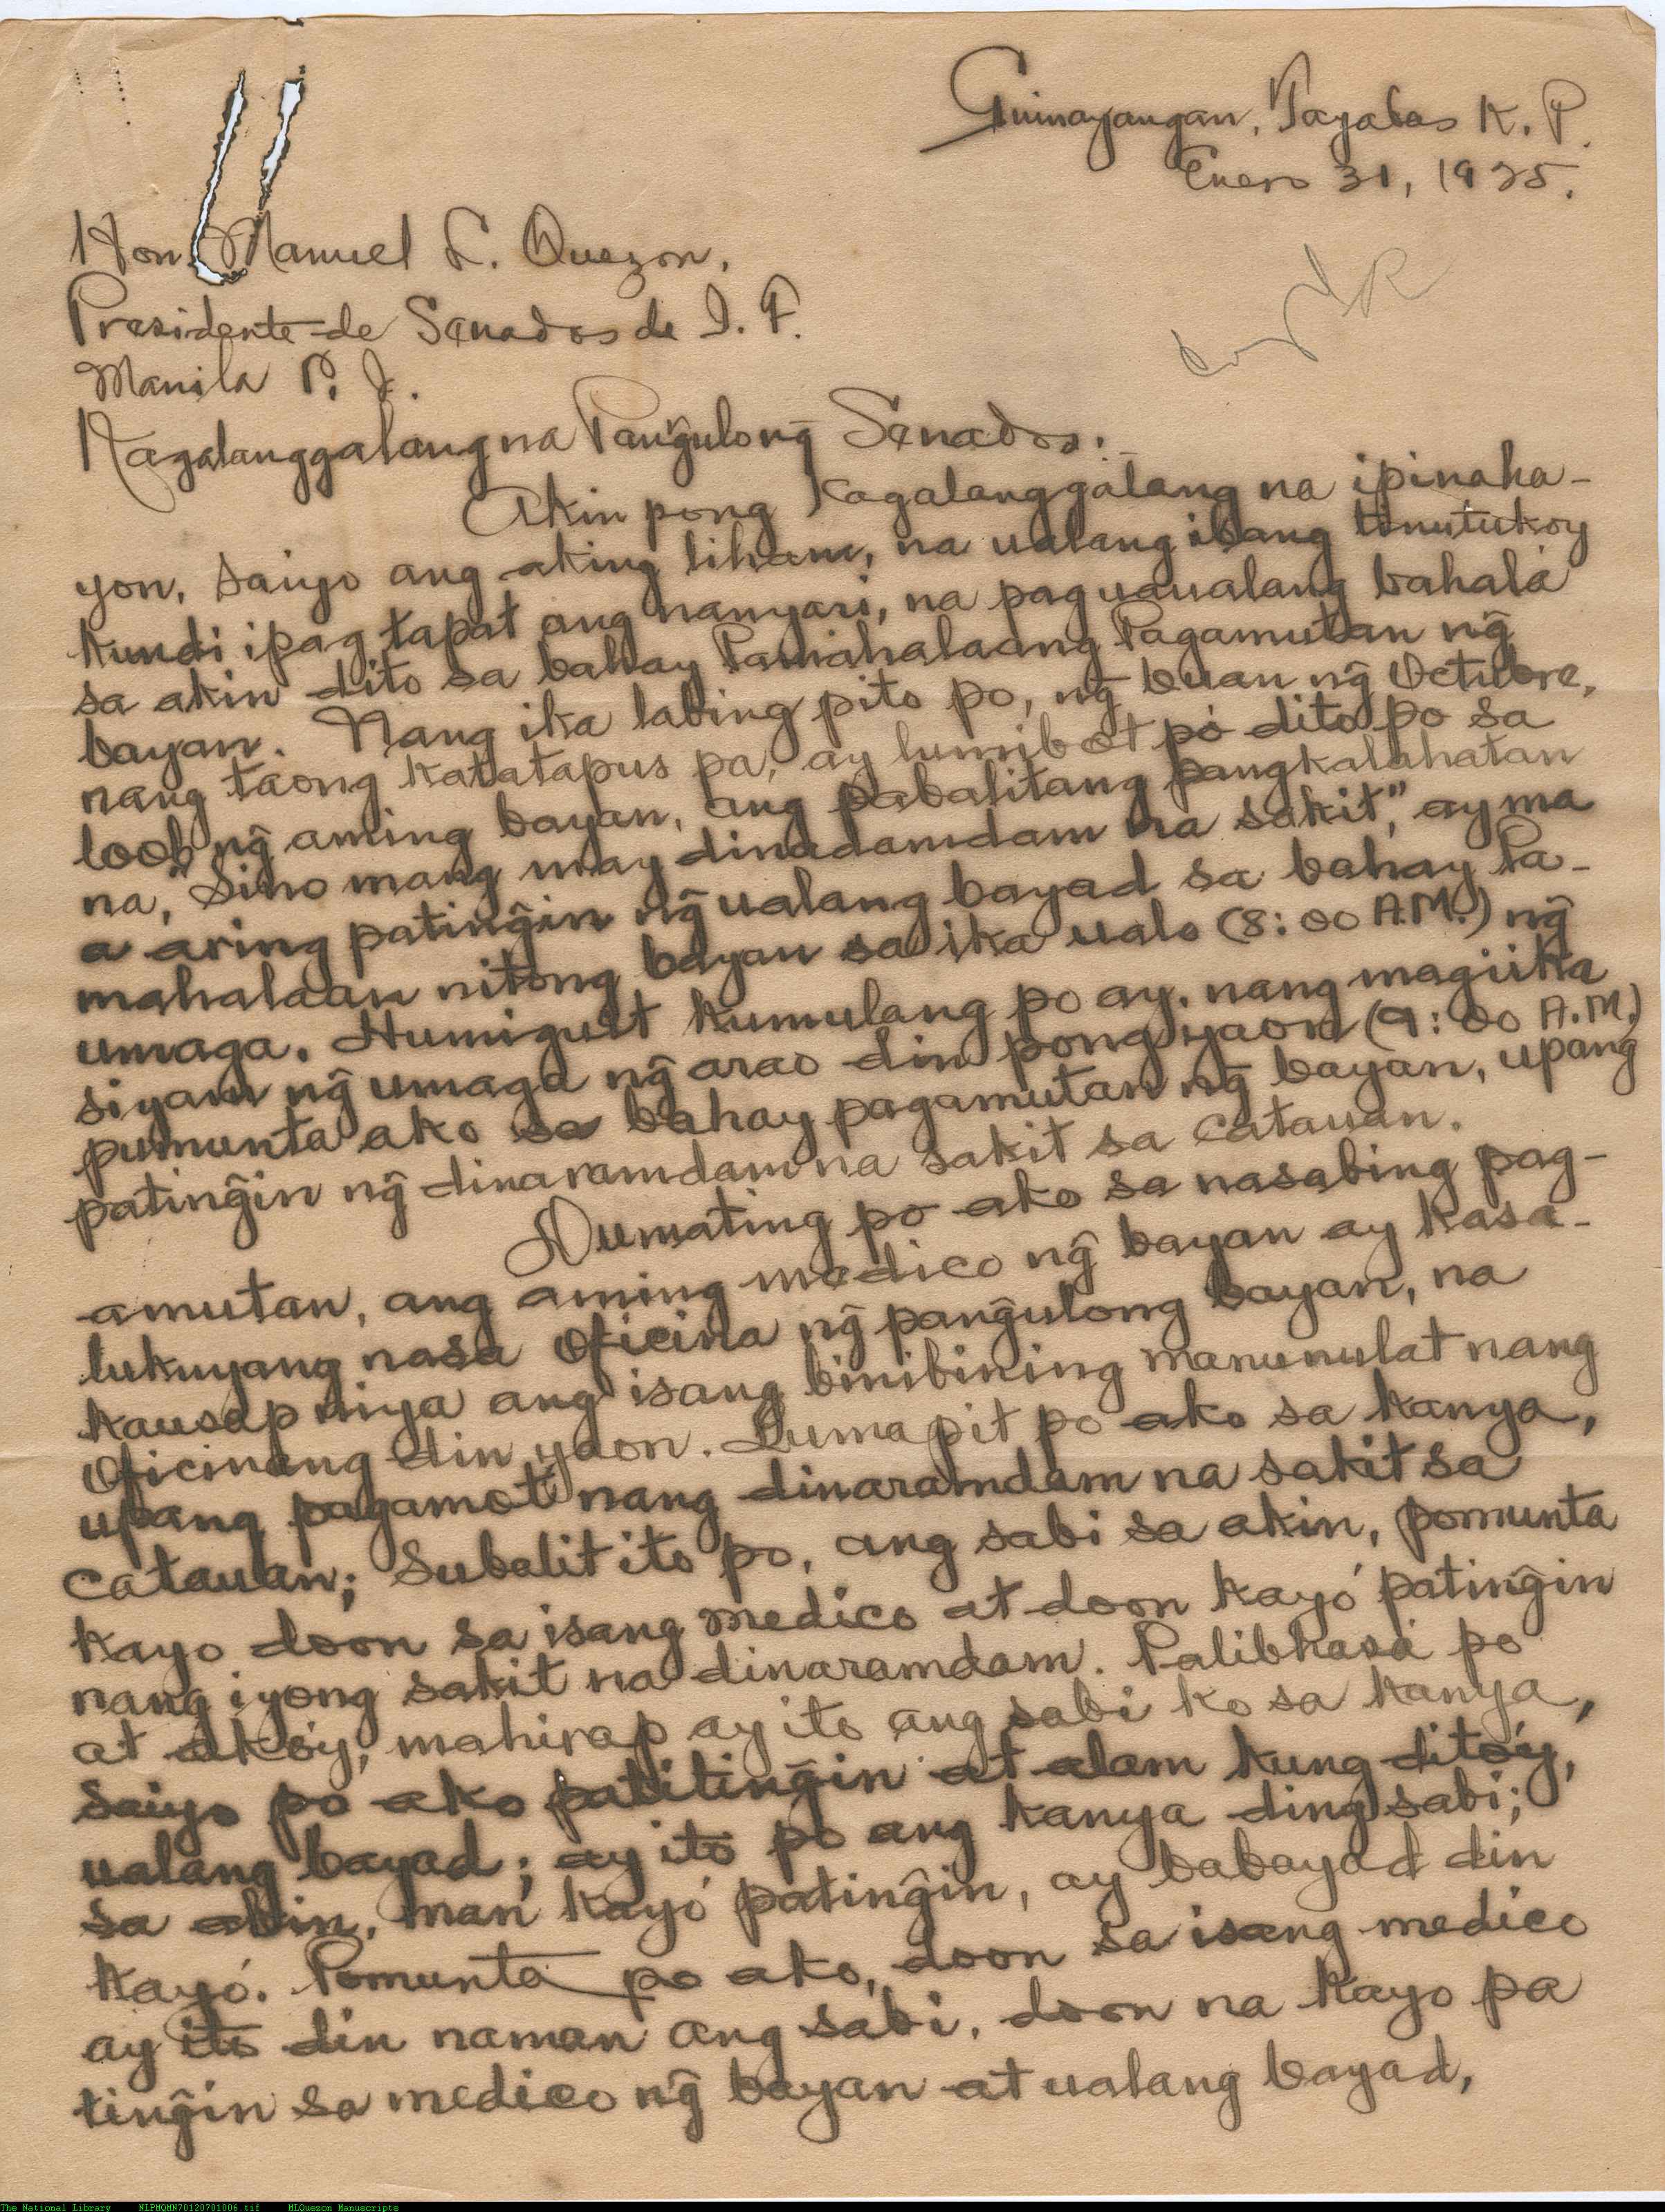 Guinayangan, Tayabas K. P.
Enero 31, 1925.
Hon. Manuel L. Quezon,
Presidente de Senados de I. F.
Manila P. I.
Kagalanggalang na Pang̃ulong Senados:
Akin pong kagalanggalang na ipinaha-
yon, saiyo ang aking liham, na ualang ibang tinutukoy
kundi ipag tapat ang nanyari, na pag uaualang bahalá
sa akin dito sa bahay Pamahalaang Pagamutan ng̃
bayan. Nang ika labing pito po, ng̃ buan ng̃ Octubre,
nang taong katatapus pa, ay lumibot po dito po sa
loob ng̃ aming bayan, ang pabalitang pangkalahatan
na, "Sino mang may dinadamdam na sakit," ay ma
a aring pating̃in ng̃ ualang bayad sa bahay Pa-
mahalaan nitong bayan sa ika ualo (8:00 A.M.) ng̃
umaga. Humiguit kumulang po ay, nang magiika
siyam ng̃ umaga ng̃ arao din pong yaon (9:00 A.M.)
pumunta ako sa bahay pagamutan ng̃ bayan, upang
pating̃in ng̃ dinaramdam na sakit sa catauan.
Dumating po ako sa nasabing pag-
amutan, ang aming medico ng̃ bayan ay kasa-
lukuyang nasa Oficina ng̃ pang̃ulong bayan, na
kausap niya ang isang binibining manunulat nang
Oficinang din yaon. Lumapit po ako sa kanya,
upang pagamot nang dinaramdam na sakit sa
catauan; Subalit ito po, ang sabi sa akin, pomunta
kayo doon sa isang medico at doon kayó pating̃in
nang iyong sakit na dinaramdam. Palibhasa po
at akóy, mahirap ay ito ang sabi ko sa kanya,
saiyo po ako patiting̃in at alam kung ditóy,
ualang bayad; ay ito po ang kanya ding sabi;
sa akin, man kayó pating̃in, ay babayad din
kayó. Pomunta po ako, doon sa isang medico
ay ito din naman ang sabi, doon na kayo pa
ting̃in sa medico ng̃ bayan at ualang bayad,
The National Library NLPMQMN70120701006.tif MLQuezon Manuscripts